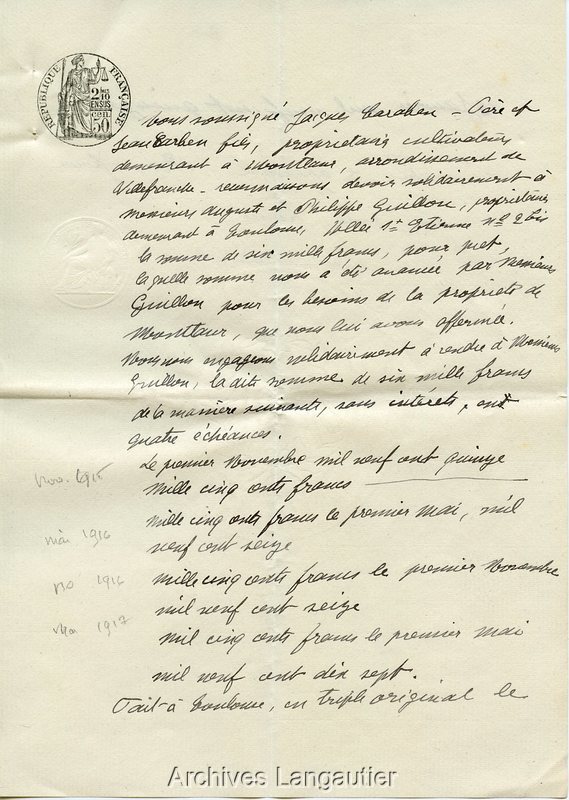 RÉPUBLIQUE FRANÇAISE
2/10 EN SUS
50 cen
Nous soussigné Jacques Caraben - Père et
Jean Carben fils, propriétaires cultivateurs
demeurant à Montlaur, arrondissement de
Villefranche - reconnaissons devoir solidairement à
monsieurs Auguste et Philippe Guillon, propriétaires
demeurant à Toulouse, Allée St Etienne no 2 bis
la somme de six mille francs, pour prêt,
laquelle somme nous a été avancée par Messieurs
Guillon pour les besoins de la propriété de
Montlaur, que nous lui avons affermée.
Nous nous engageons solidairement à rendre à Messieurs
Guillon, la dite somme de six mille francs
de la manière suivante, sans intérêts, en
quatre échéances.
Le premier Novembre mil neuf cent quinze
nov. 1915
mille cinq cents francs
mille cinq cents francs le premier mai, mil
mai 1916
neuf cent seize
no 1916
mille cinq cents francs le premier Novembre
mil neuf cent seize
mai 1917
mil cinq cents francs le premier mai
mil neuf cent dix sept.
Fait à Toulouse, en triple original le
Archives Langautier